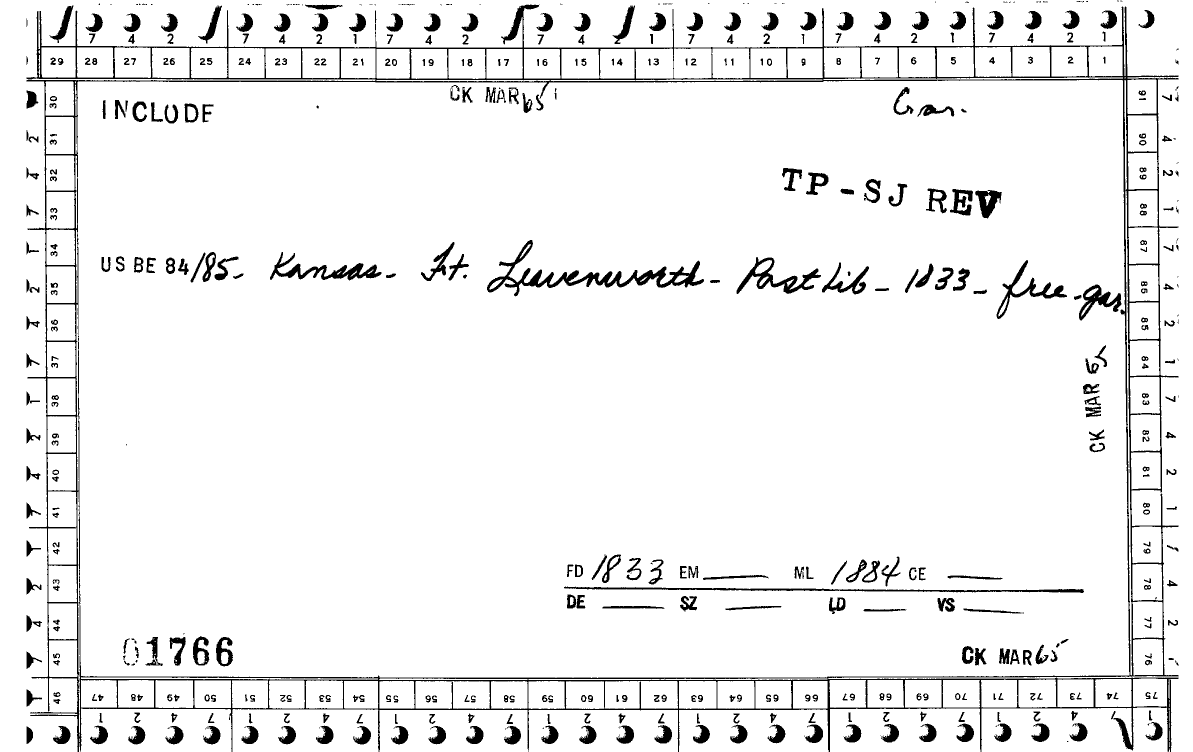 7 4 2 1 7 4 2 1 7 4 2 1 7 4 2 1 7 4 2 1 7 4 2 1
29 28 27 26 25 24 23 22 21 20 19 18 17 16 15 14 13 12 11 10 9 8 7 6 5 4 3 2 1
CK MAR 65
INCLUDE
TP-SJ REV
US BE 84/85- Kansas- Ft. Leavenworth- Post Lib - 1833 - free - gar.
CK MAR 65
FD 1833 EM ML 1884 CE
DE SZ LD VS
01766
CK MAR 65
30 31 32 33 34 35 36 37 38 39 40 41 42 43 44 45 46
91 90 89 88 87 86 85 84 83 82 81 80 79 78 77 76
47 48 49 50 51 52 53 54 55 56 57 58 59 60 61 62 63 64 65 66 67 68 69 70 71 72 73 74 75